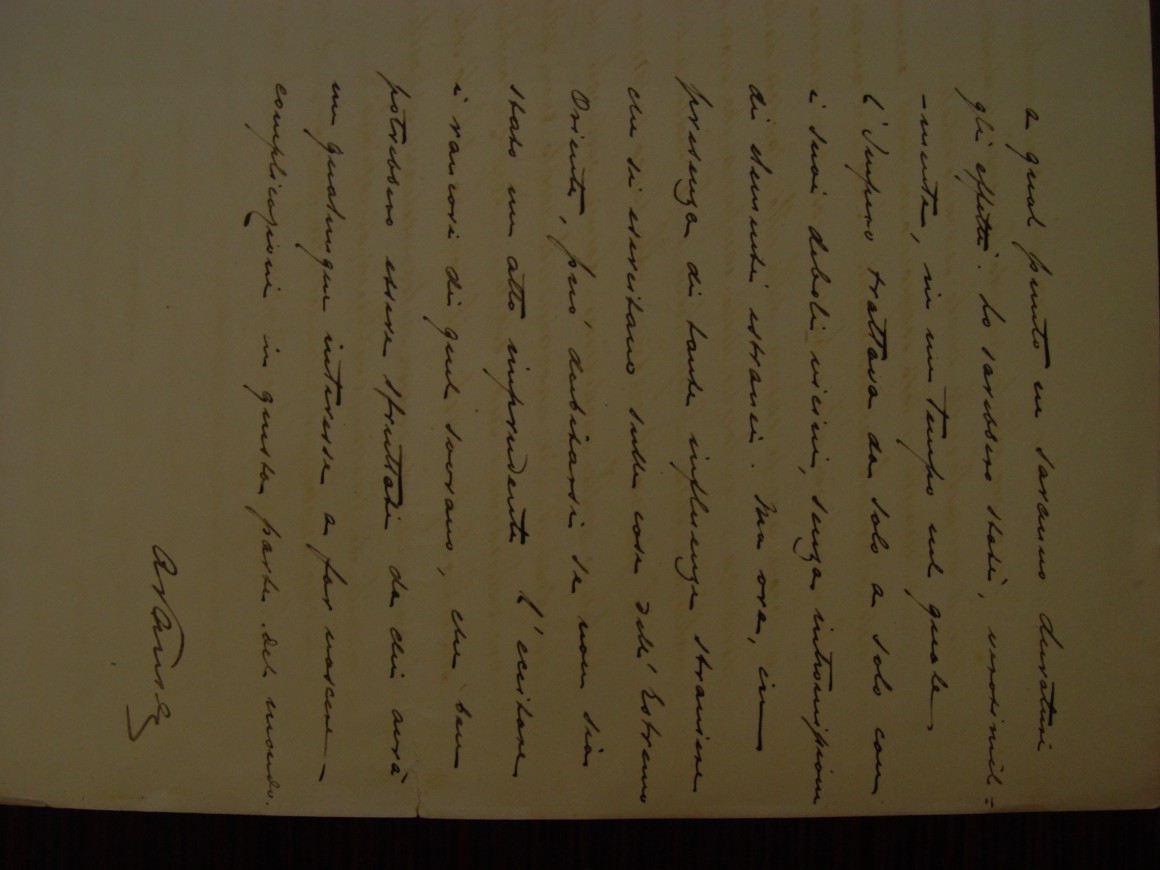 a qual punto ne saranno duraturi
gli effetti. Lo sarebbero stati, verosimil=
-mente, in un tempo nel quale
l'Impero trattava da solo a solo con
i suoi deboli vicini, senza intromissioni
di elementi estranei. Ma ora, in
presenza di tante influenze straniere
che si esercitano sulle cose dell'Estremo
Oriente, può dubitarsi se non sia
stato un atto imprudente l'eccitare
i rancori di quel sovrano, che ben
potrebbero essere sfruttati da chi avrà
un qualunque interesse a far nascere
complicazioni in questa parte del mondo.